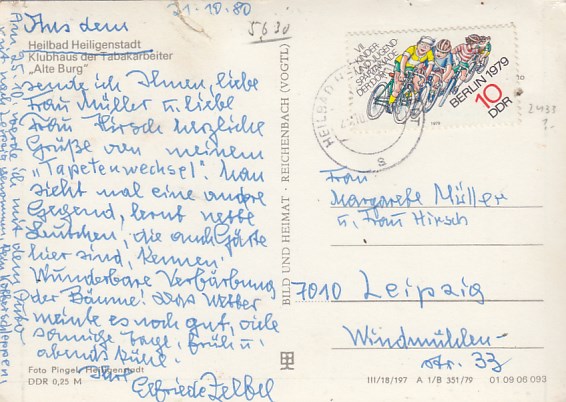 21-10-80
5630
Aus dem
Heilbad Heiligenstadt
Klubhaus der Tabakarbeiter
„Alte Burg"
sende ich Ihnen, liebe
Frau Müller u. liebe
Frau Hirsch herzliche
Grüße von meinem
„Tapetenwechsel". Man
sieht mal eine andere
Gegend, lernt nette
Leutchen, die auch Gäste
hier sind, kennen.
Wunderbare Verfärbung
der Bäume! Das Wetter
meinte es noch gut, viele
sonnige Tage, früh u.
abends kühl.
Ihre
Elfriede Zelbel
Am 25.10. werde ich mit dem Auto
nach Leipzig
Foto Pingel, Heiligenstadt
DDR 0,25 M
BILD UND HEIMAT · REICHENBACH (VOGTL)
VII.
KINDER
UND JUGEND
SPARTAKIADE
DER DDR
BERLIN 1979
10
DDR
1979
HEILBAD
2433
1.-
Frau
Margarete Müller
u. Frau Hirsch
7010 Leipzig
Windmühlen-
str. 33
III/18/197 A 1/B 351/79 01 09 06 093